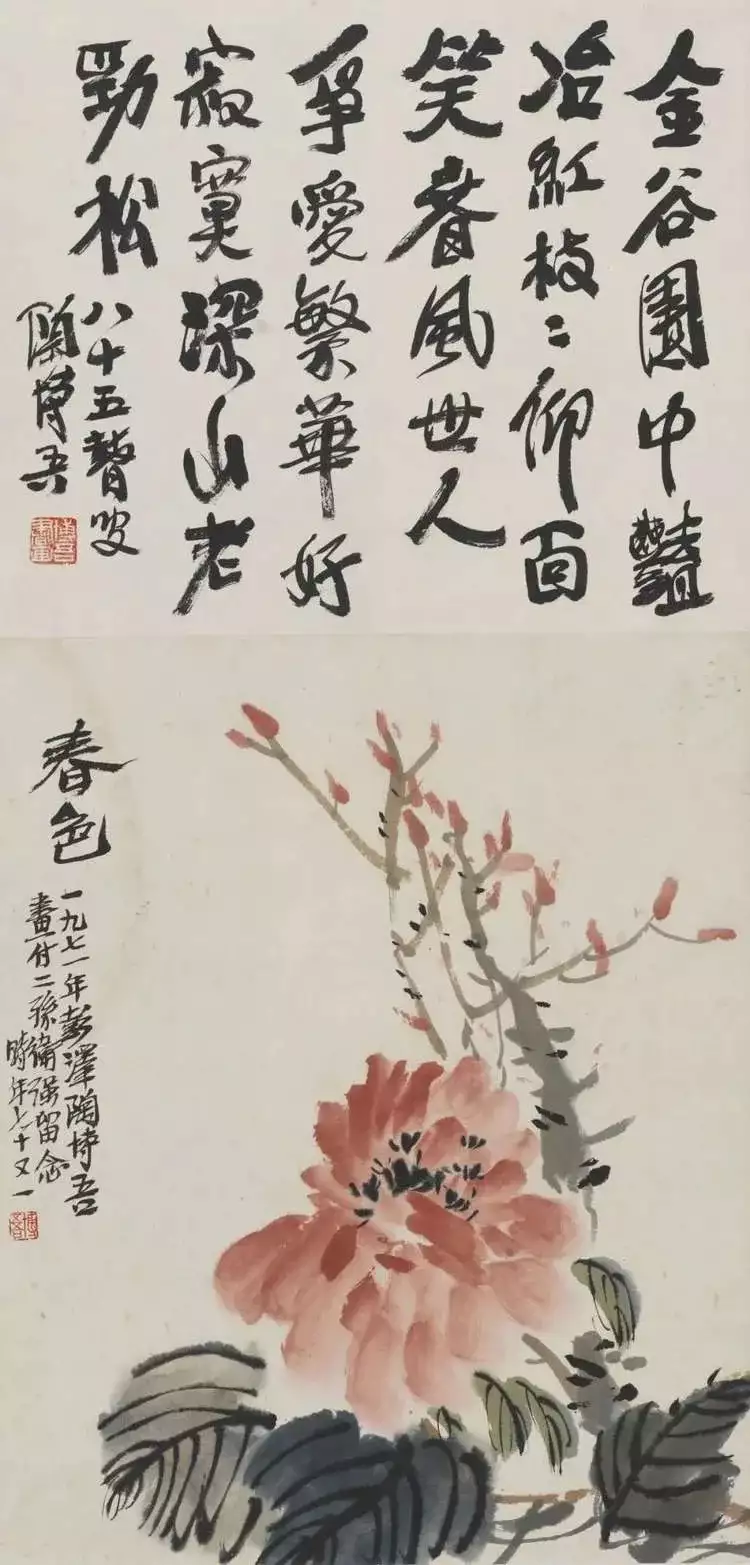 金谷園中豔
冶紅枝〻仰面
笑春風世人
爭愛繁華好
寂寞深山老
勁松
八十五聾叟
陶博吾
春色
一九七一年彭澤陶博吾
畫付二孫强留念
時年七十又一